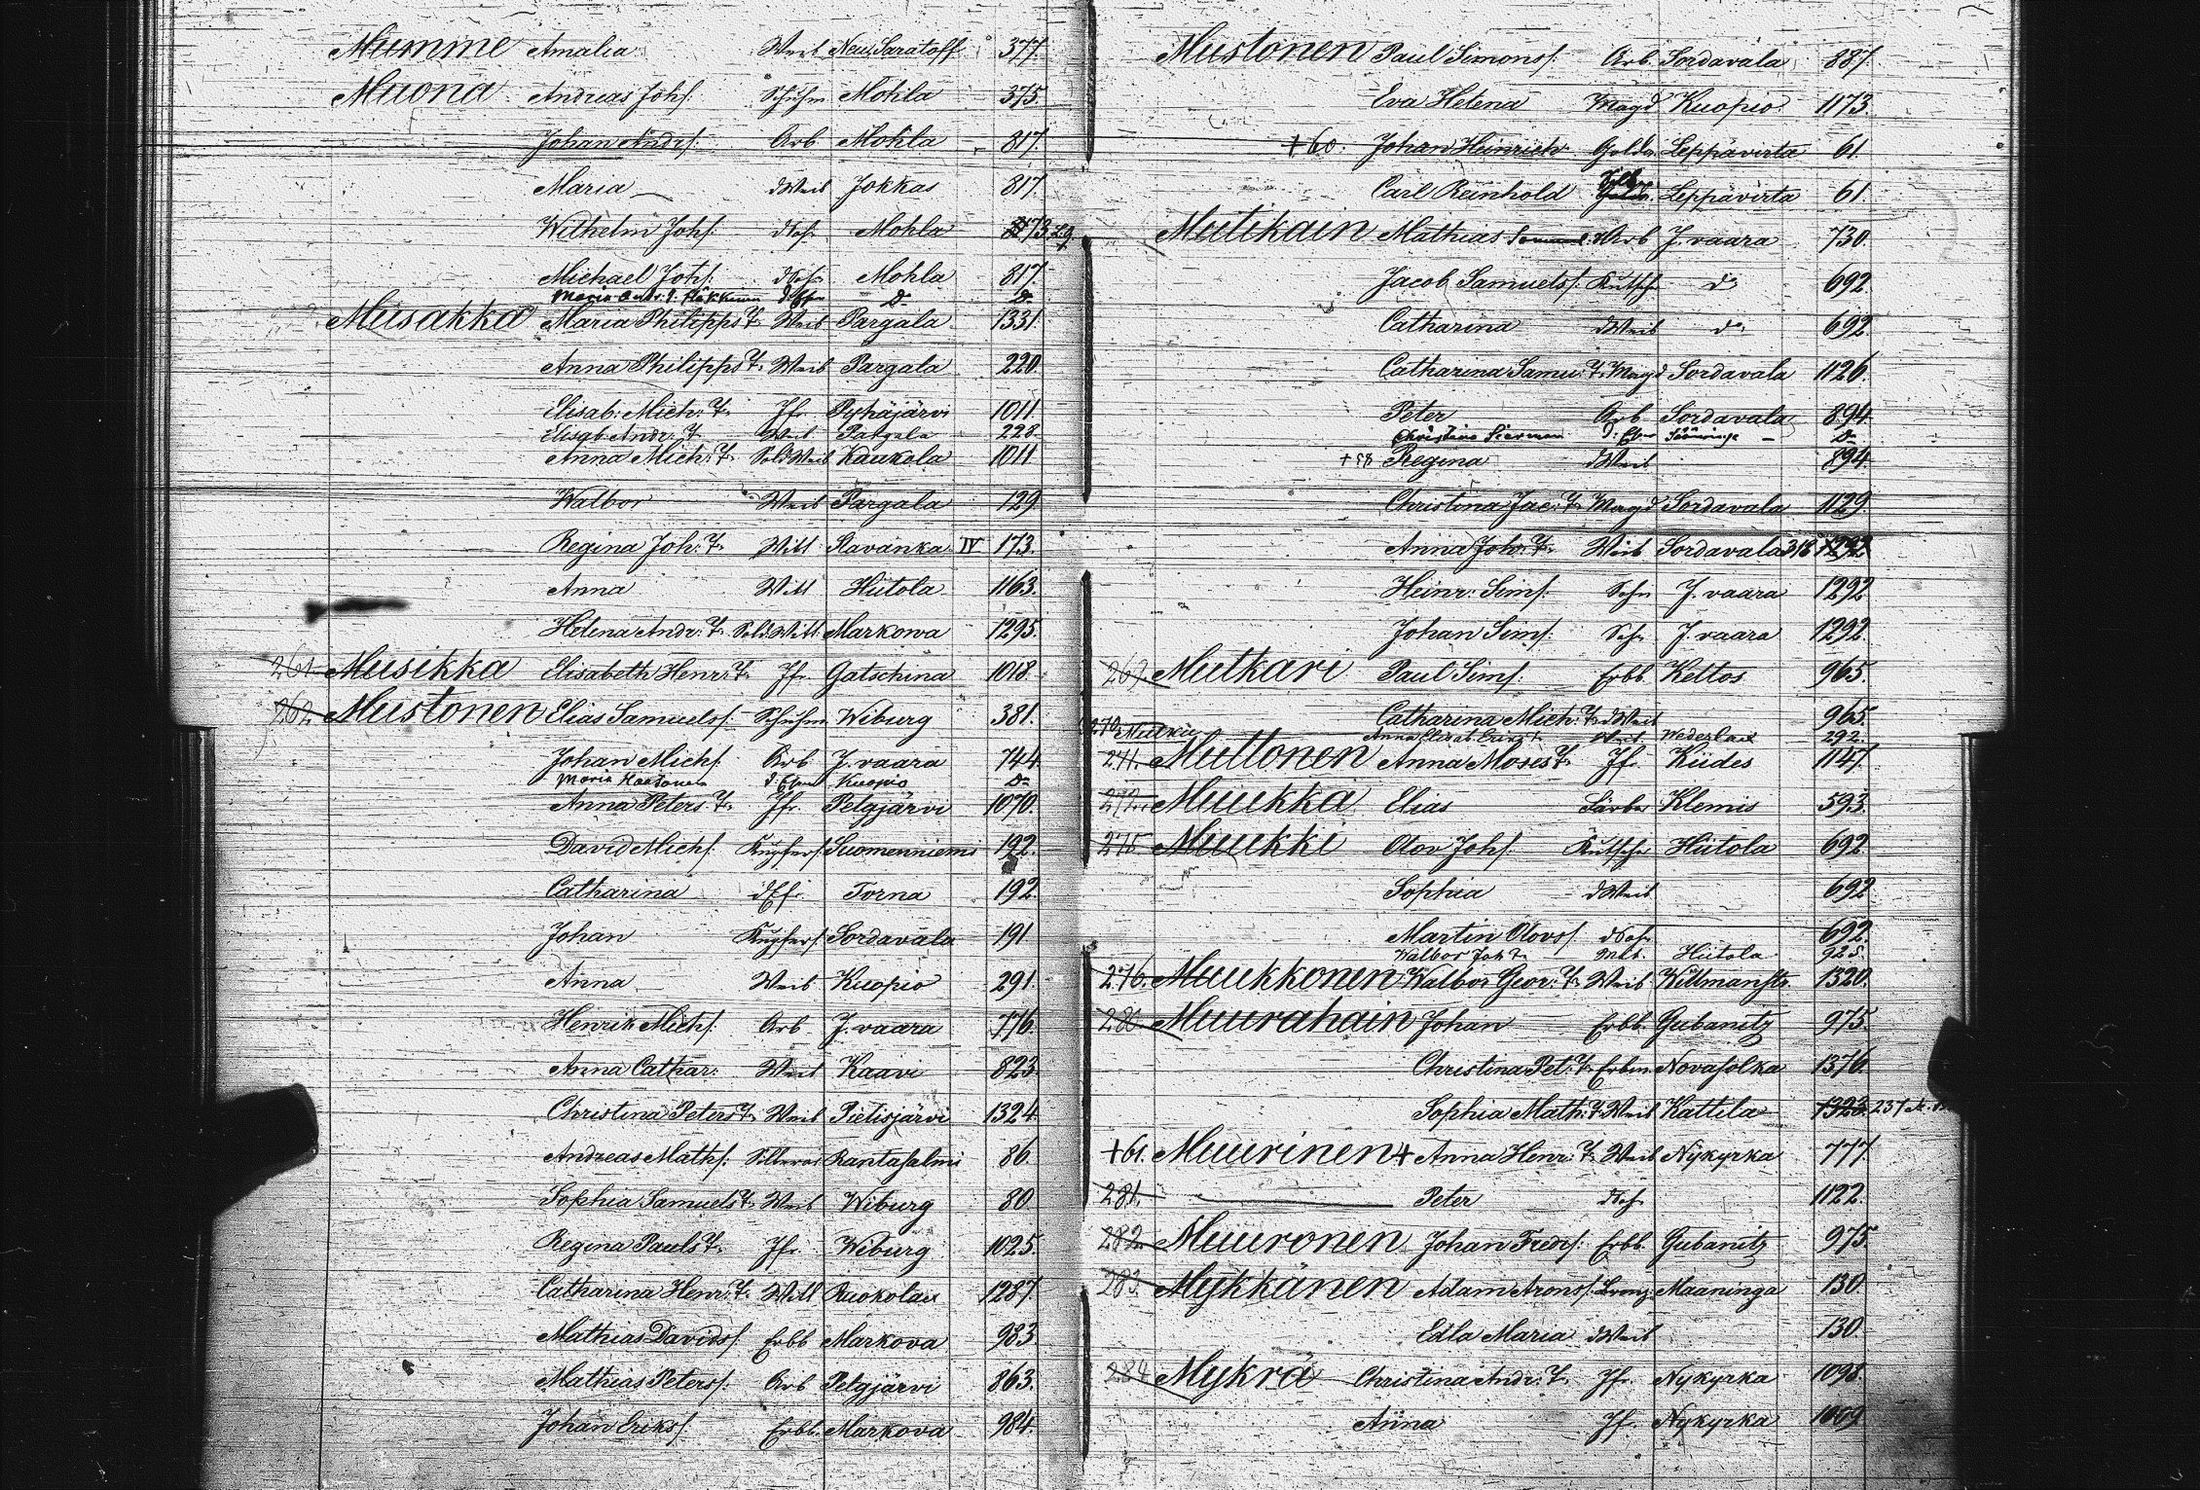 Mumme Amalia Weib Neu Saratoff 377.
Muona Andreas Johs. Schuhm Mohla 375.
Johan Andrs. Arb Mohla 817.
Maria dWeib Jokkas 817.
Wilhelm Johs. dSohn Mohla 1173
Michael Johs. dSohn Mohla 817.
Maria Andr. T. D. D.
Musakka Maria Philipps T. Weib Pargala 1331
Anna Philipps T. Weib Pargala 220.
Elisab: Mich: T. Jfr. Pyhäjärvi 1011.
Elisab: Andr: T. Weib Pargala 228.
Anna Mich: T. SoldWeib Kaukola 1011
Walbor Weib Pargala 129.
Regina Joh: T. Witt Ravanka IV 173.
Anna Witt Hiitola 1163.
Helena Andr: T. SoldWitt Markowa 1295.
261. Musikka Elisabeth Henr: T. Jfr. Gatschina 1018.
262. Mustonen Elias Samuelss. Schuhm Wiburg 381.
Johan Michs. Arb J. vaara 744.
Maria Kuopio D.
Anna Peters T. Jfr. Pelgjärvi 1070.
David Michs. Kupfers. Suomenniemi 192.
Catharina dEf. Torna 192.
Johan Kupfers. Sordavala 191
Anna Weib Kuopio 291.
Henrik Michs. Arb J. vaara 776.
Anna Cathar: Weib Kaavi 823.
Christina Peters T. Weib Pielisjärvi 1324.
Andreas Maths. Silberar Rantasalmi 86.
Sophia Samuels T. Weib Wiburg 80.
Regina Pauls T. Jfr. Wiburg 1025.
Catharina Henr: T. Witt Ruokolax 1287.
Mathias Davidss. Erbb Markova 983.
Mathias Peterss. Arb Pelgjärvi 863.
Johan Erikss. Erbb. Markova 984.
Mustonen Paul Simonss. Arb. Sordavala 887.
Eva Helena Magd Kuopio 1173.
+60. Johan Heinrich Golda Leppävirta 61.
Carl Reinhold Silb. Leppävirta 61.
Mutikain Mathias Arb J. vaara 730.
Jacob Samuelss. Kutsch do 692.
Catharina dWeib do 692.
Catharina Samu: T. Magd Sordavala 1126.
Peter Arb. Sordavala 894.
Christina D.
+58 Regina dWeib 894.
Christina Jac: T. Magd Sordavala 1129.
Anna Joh: T. Weib Sordavala 318 1292
Heinr: Sims. Sohn J. vaara 1292
Johan Sims. Sohn J. vaara 1292.
267. Mutkari Paul Sims. Erbb. Keltos 965.
Catharina Mich: T. dWeib 965.
270. Mutku Anna Elisab. Weib Wederlax 292.
271. Muttonen Anna Moses T. Jfr. Kides 1147.
272. Muukka Elias Färber Klemis 593.
275. Muukki Olov Johs. Kutsch Hiitola 692.
Sophia dWeib 692
Martin Olovs. dSohn 692.
Walbor Joh T. Hiitola 925.
276. Muukkonen Walbor Geor: T. Weib Willmanstr. 1320.
280. Muurahain Johan Erbb. Gubanitz 975.
Christina Pet: T. Erbin Novasolka 1376.
Sophia Math: T. Weib Kattila 1323. 237
+61. Muurinen + Anna Henr: T. Weib Nykyrka 777.
281. Peter dSohn 1122.
282. Muuronen Johan Fredrs. Erbb. Gubanitz 975.
283. Mykkänen Adam Aronss. Bronz. Maaninga 130.
Edla Maria dWeib 130
284. Mykrä Christina Andr: T. Jfr. Nykyrka 1098.
Anna Jf. Nykyrka 1009